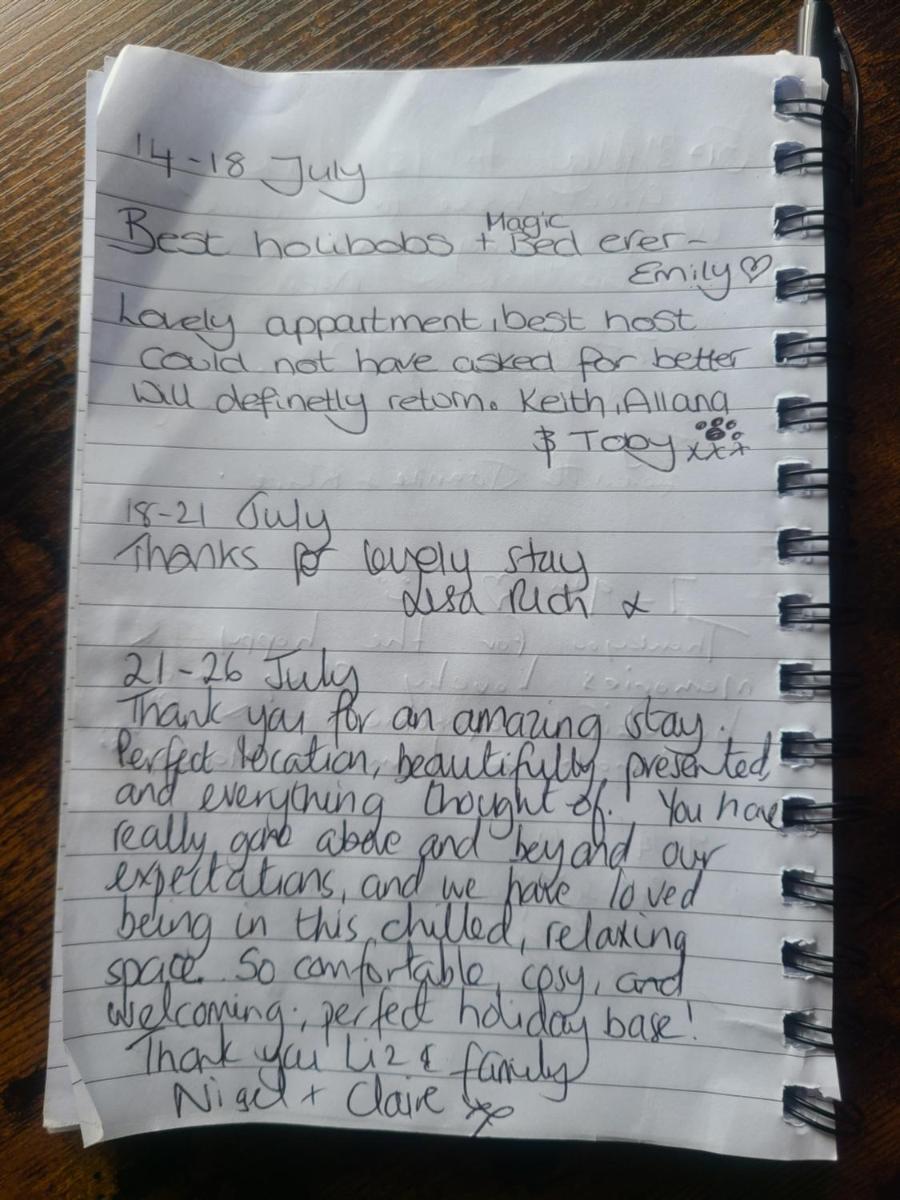 14-18 July
Best holibobs + Magic Bed ever-
Emily ♡
Lovely appartment, best host
Could not have asked for better
Will definetly return. Keith, Allana
& Toby xxx
18-21 July
Thanks for lovely stay
Lisa Rich x
21-26 July
Thank you for an amazing stay.
Perfect location, beautifully presented
and everything thought of. You have
really gone above and beyond our
expectations, and we have loved
being in this chilled, relaxing
space. So comfortable, cosy, and
welcoming; perfect holiday base!
Thank you Liz & family
Nigel + Claire xx